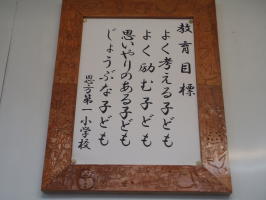 教育目標
よく考える子ども
よく励む子ども
思いやりのある子ども
じょうぶな子ども
恩方第一小学校